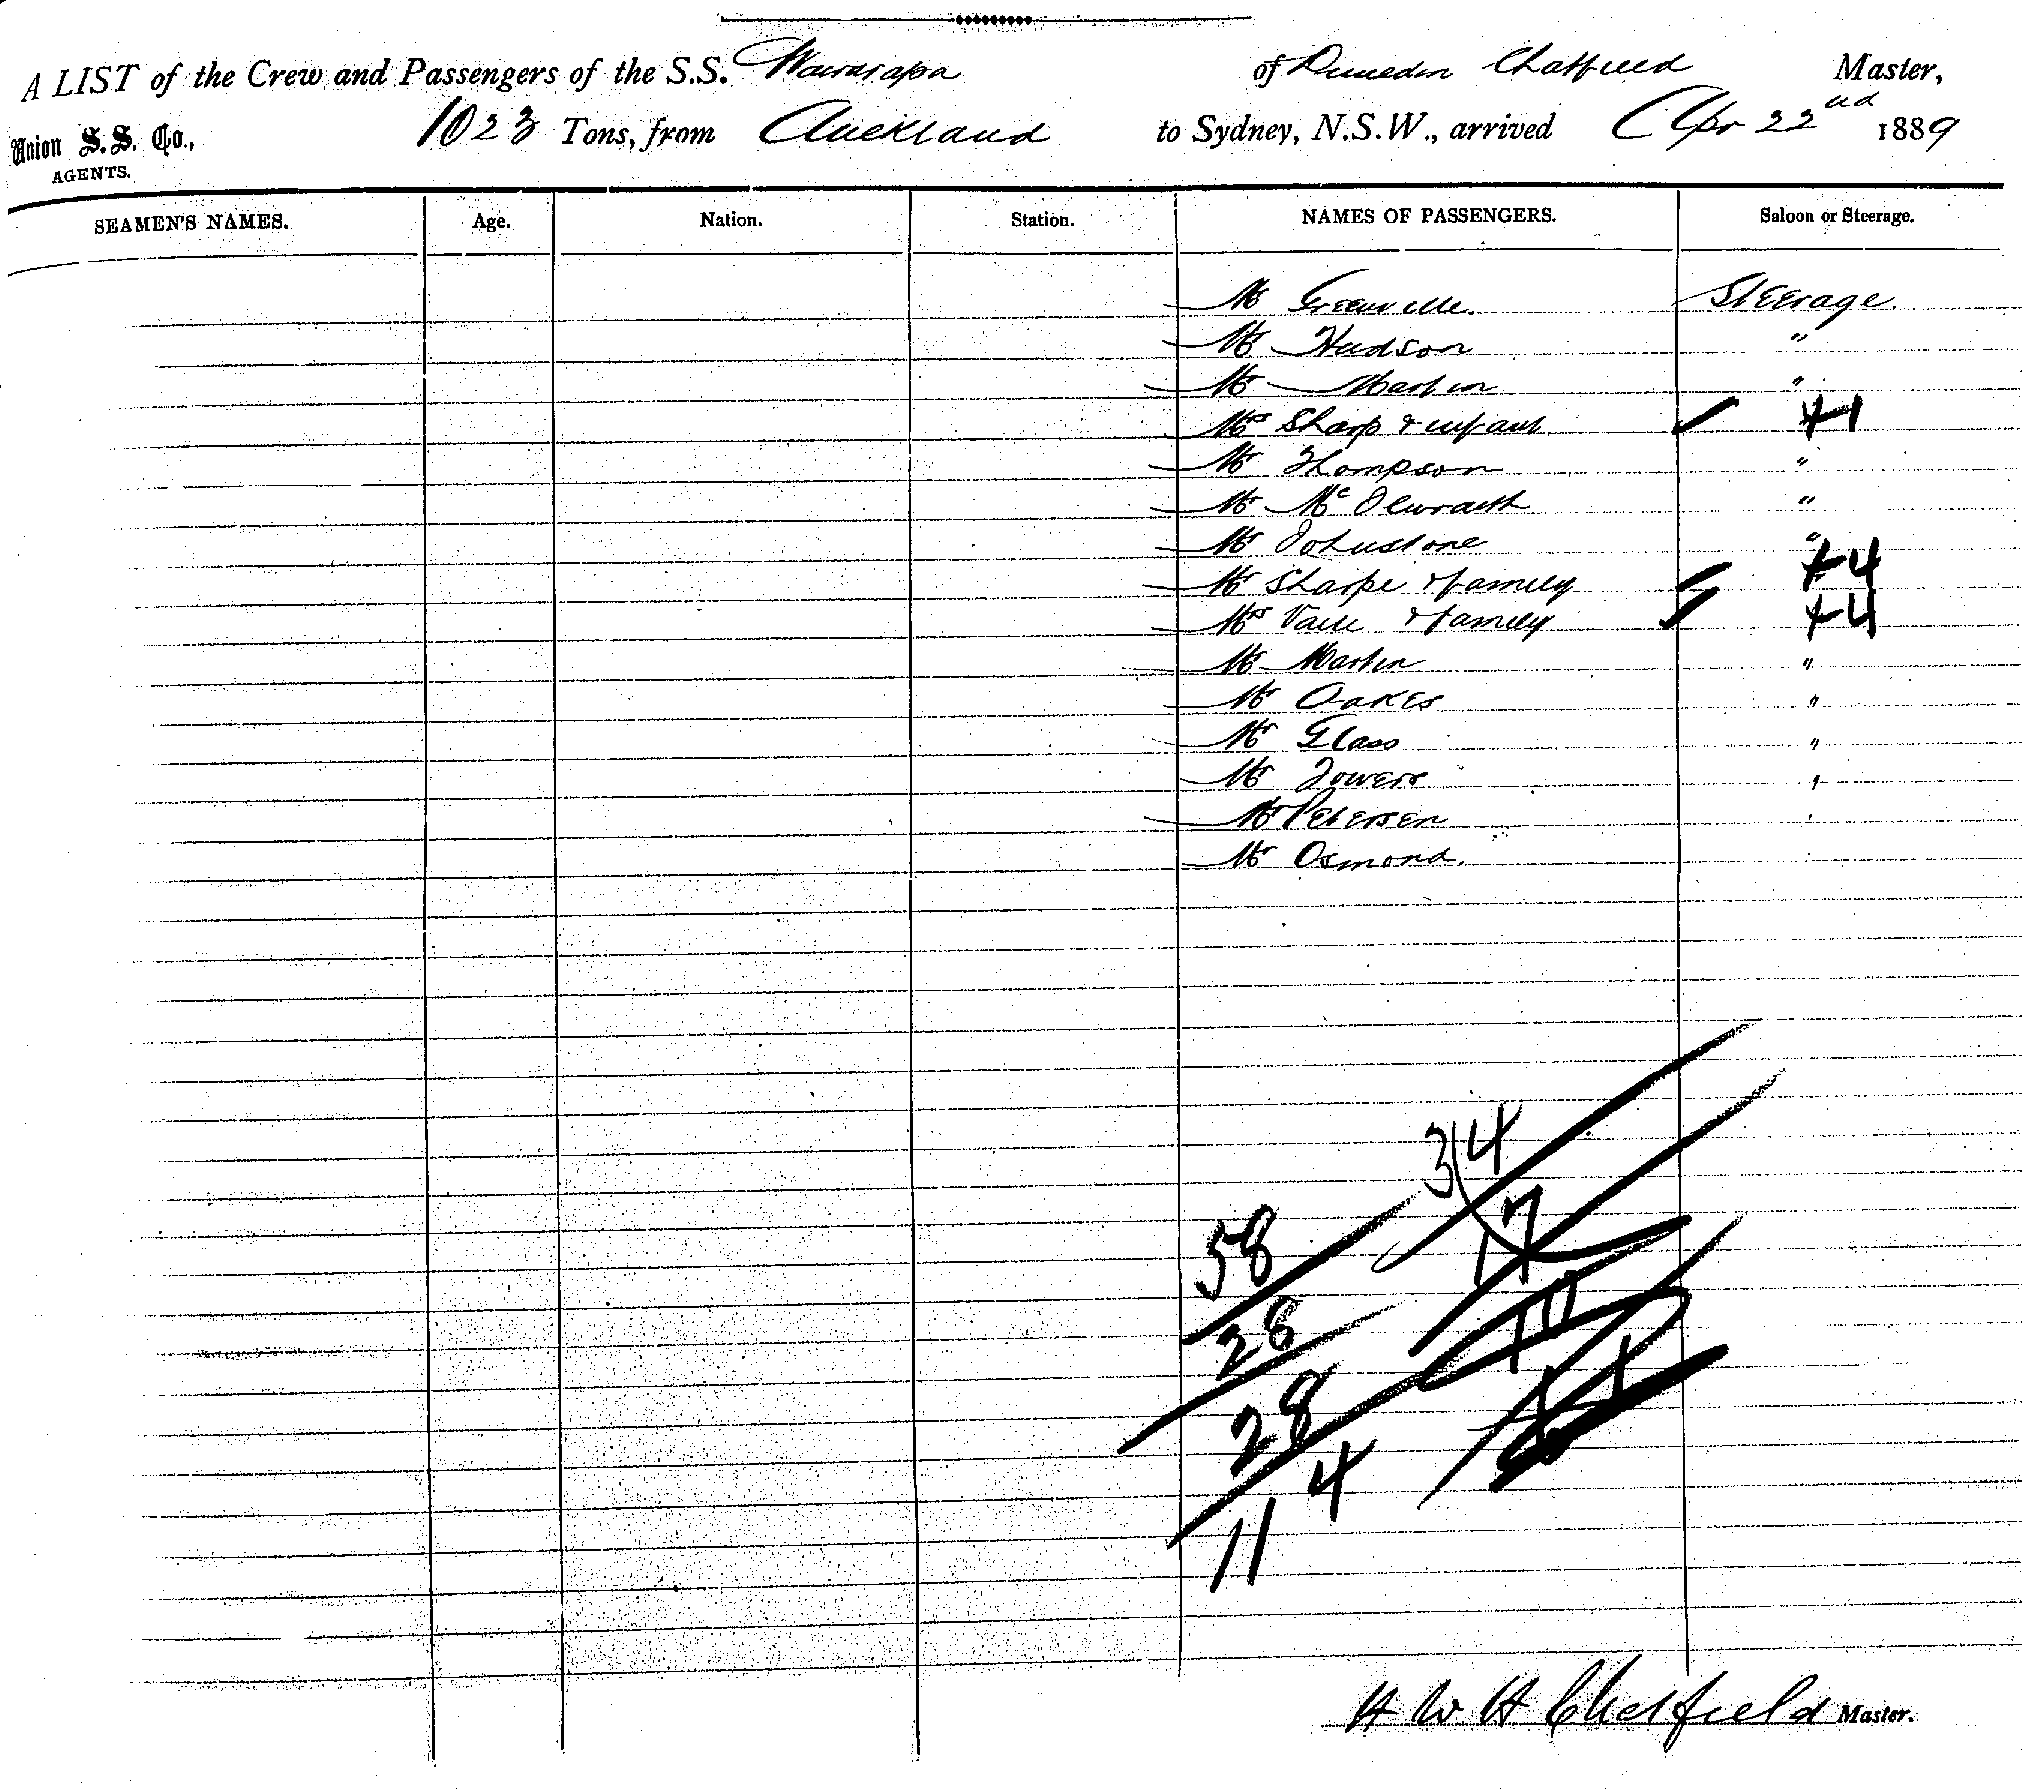 A LIST of the Crew and Passengers of the S.S. Wairarapa of Dunedin Chatfield Master,
Union S.S. Co., AGENTS. 1023 Tons, from Auckland to Sydney, N.S.W., arrived Apr 22nd 1889
SEAMEN'S NAMES. Age. Nation. Station. NAMES OF PASSENGERS. Saloon or Steerage.
Mr Greenville. Steerage.
Mr Hudson "
Mr Martin "
Mrs Sharp & infant + 1
Mr Thompson "
Mr McIlwraith "
Mr Johnstone "
Mr Sharpe & family + 4
Mrs & family + 4
Mr Martin "
Mr Oakes "
Mr Glass "
Mr Towers "
Mr Petersen "
Mr Osmond.
314
58 17
28 10
28 11
4
11
H W H Chatfield Master.